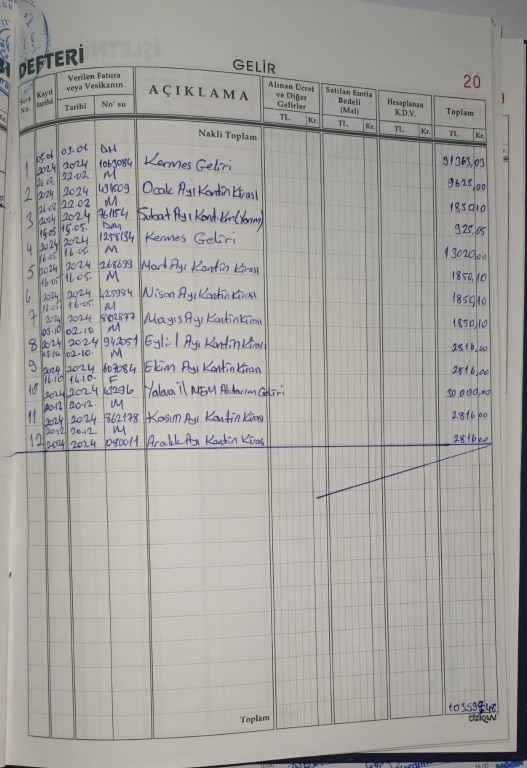 DEFTERİ
GELİR
20
Sıra No.
Kayıt tarihi
Verilen Fatura veya Vesikanın
Tarihi
No' su
AÇIKLAMA
Alınan Ücret ve Diğer Gelirler
TL. Kr.
Satılan Emtia Bedeli (Mal)
TL. Kr.
Hesaplanan K.D.V.
TL. Kr.
Toplam
TL. Kr.
Nakli Toplam 91363,03
1 2024 2024 1063084 Kermes Geliri 9625,00
2 2024 22.02 2024 M Ocak Ayı Kantin Kirası 1850,10
3 2024 22.02 2024 M 761154 Şubat Ayı Kant. Kir. (Yarım) 925,05
4 2024 15.05. 2024 1258134 Kermes Geliri 13020,00
5 2024 16.05. 2024 M 268699 Mart Ayı Kantin Kirası 1850,10
6 2024 16.05. 2024 M 425984 Nisan Ayı Kantin Kirası 1850,10
7 2024 16.05. 2024 M 802877 Mayıs Ayı Kantin Kirası 1850,10
8 2024 02.10 2024 M 942051 Eylül Ayı Kantin Kirası 2816,00
9 2024 02.10. 2024 M 607084 Ekim Ayı Kantin Kirası 2816,00
10 16.10 2024 14.10. 2024 F 43296 Yalova İl MEM Aktarım Geliri 30000,00
11 20.12 2024 20.12. 2024 M 862178 Kasım Ayı Kantin Kirası 2816,00
12 20.12 2024 20.12 2024 M 080011 Aralık Ayı Kantin Kirası 2816,00
Toplam
ÖZKAN